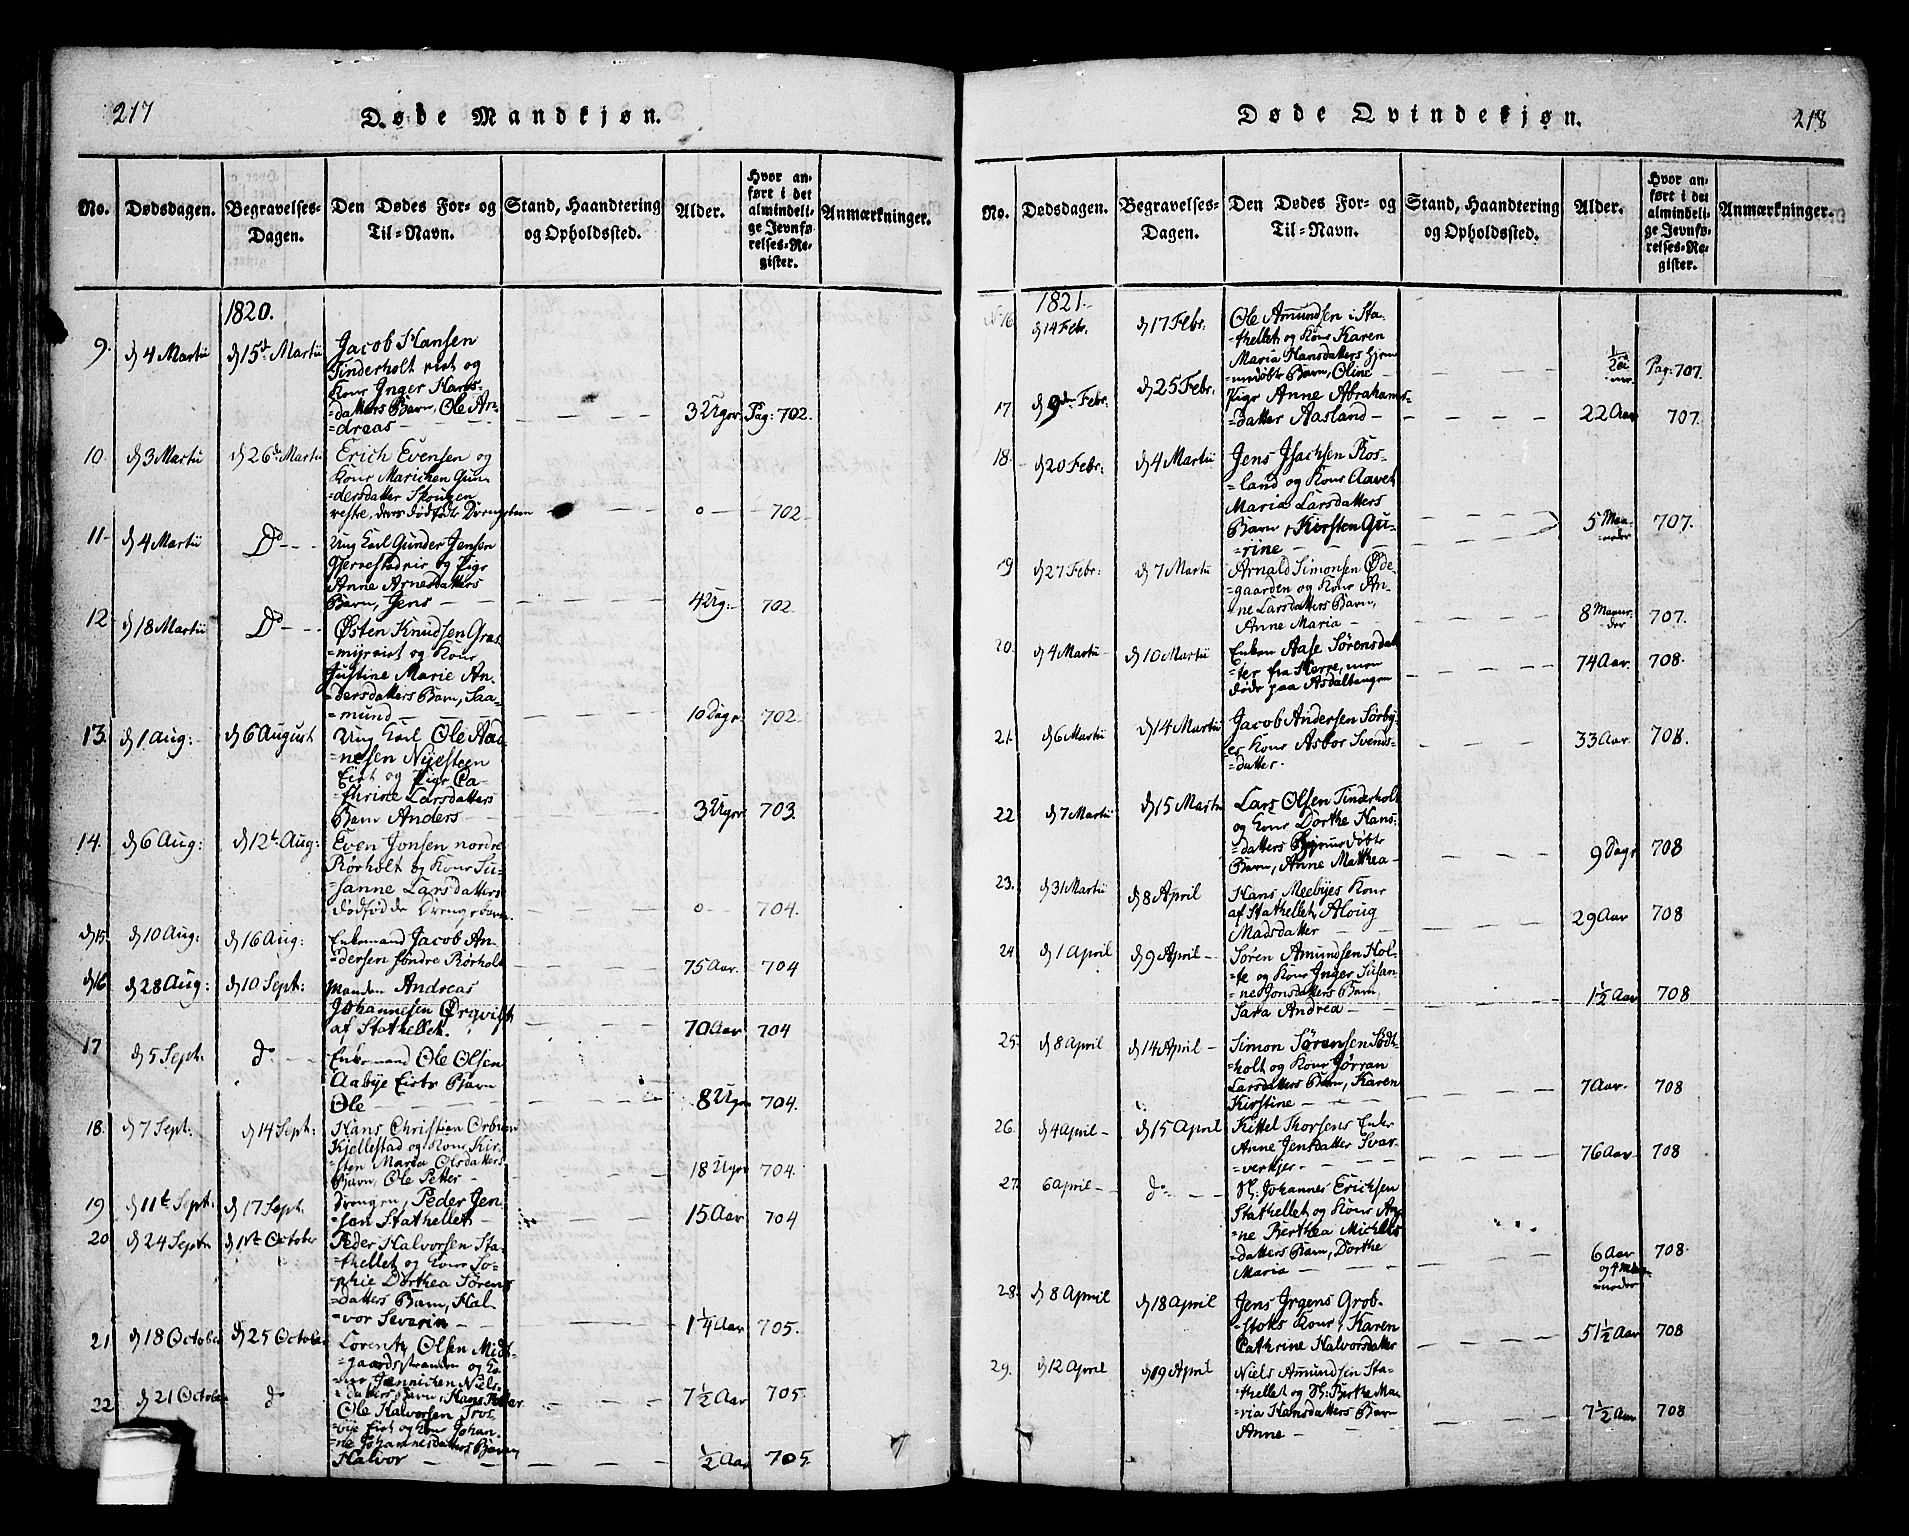 217
Døde Mandkjøn.
No.
Dødsdagen.
Begravelses-
Dagen.
Den Dødes For- og
Til-Navn.
Stand, Haandtering
og Opholdssted.
Alder.
Hvor an-
ført i det
almindeli-
ge Jevnfø-
relses-Re-
gister.
Anmærkninger.
1820.
9. d 4 Martii d 15de Martii Jacob Hansen
Tinderholt
Kone Inger Hans-
=datters Barn, Ole An-
=dreas — 3 Uger Pag: 702.
10. d 3 Martii d 26de Martii Erich Evensen og
Kone Marichen Gun
=dersdatter
deres dødfødte Drengebarn — o — 702
11. d 4 Martii Do Ung Karl Gunder Jensen
og Pige
Anne Arnesdatters
Barn, Jens — 4 Ug: 702
12 d 18 Martii Do Østen Knudsen Gras-
=myr og Kone
Justine Marie An-
=dersdatters Barn, Saa-
=mund — 10 Dage 702.
13. d 1 Aug: d 6 August Ung Karl Ole Aad-
=nesen Nyesteen
Eiet og Pige Ca-
=thrine Larsdatters
Barn Anders — 3 Uger 703.
14. d 6 Aug: d 12te Aug: Even Jonsen nordre
Rørholt og Kone Su-
=sanne Larsdatters
dødfødde Drengebarn. — o — 704.
d 15. d 10 Aug: d 16 Aug: Enkemand Jacob An-
=dersen søndre Rørholt — 75 Aar. 704
d 16 d 28 Aug: d 10 Sept: Manden Andreas
Johannesen Ørqvist
af Stathellet. — 70 Aar 704
17 d 5 Sept. do Enkemand Ole Olsen
Aabye Eiets Barn
Ole — 8 Uger 704.
18. d 7 Sept: d 14 Sept: Hans Christian
Kjellestad og Kone Kir-
=sten Maria Olsdatters
Barn, Ole Petter — 18 Uger 704.
19 d 11te Sept: d 17 Sept. Drengen, Peder Jen
=sen Stathellet — 15 Aar 704
20 d 24 Septr d 1ste October Peder Halvorsen Sta-
=thellet og Kone So-
=phie Dorthea Sørens
=datters Barn, Hal
=vor Severin — 1¼ Aar 705.
21 d 18 October d 25 October Lorentz Olsen Midt-
=gaardsstranden og Ko-
=ne Jannichen Niels-
=datters Barn, Hans Petter 7½ Aar 705
22 d 21 October do Ole Halvorsen Tros
=vije Eiet og Kone Johan-
=ne Johannesdatters Barn
Halvor — ½ Aar 705.
Døde Qvindekjøn.
218
No.
Dødsdagen.
Begravelses-
Dagen.
Den Dødes For- og
Til-Navn.
Stand, Haandtering
og Opholdssted.
Alder.
Hvor an-
ført i det
almindeli-
ge Jevnfø-
relses-Re-
gister.
Anmærkninger.
1821.
16 d 14 Febr. d 17 Febr: Ole Amundsen i Sta-
=thellet og Kone Karen
Maria Hansdatters hjem
=medøbte Barn, Oline — Pag: 707.
17. d 9de Febr. d 25 Febr. Pige Anne Abrahams-
=datter Aasland — 22 Aar 707.
18. d 20 Febr: d 4 Martii Jens Isachsen Ros-
=land og Kone
Maria Larsdatters
Barn, Kirsten Gu-
=rine — 5 Maa-
=neder 707.
19 d 27 Febr: d 7 Martii Arnald Simonsen Øde-
=gaarden og Kone An-
=ne Larsdatters Barn,
Anne Maria — 8 Maane-
der 707.
20. d 4 Martii d 10 Martii Enken Aase Sørensdat
=ter fra Herre, men
døde paa Asdaltangen — 74 Aar. 708.
21. d 6 Martii d 14 Martii Jacob Andersen Sørby-
es Kone Asbor Svends-
=datter. — 33 Aar 708.
22 d 7 Martii d 15 Martii Lars Olsen Tinderholt
og Kone Dorthe Hans-
=datters hjemmedøbte
Barn, Anne Matthea — 9 Dage 708
23. d 31 Martii d 8 April Hans Meebyes Kone
af Stathellet, Aloug
Madsdatter — 29 Aar 708
24 d 1 April d 9 April Søren Amundsen Hol-
=te og Kone Inger Susan-
=ne Jonsdatters Barn,
Sara Andrea — 1½ Aar 708
25. d 8 April d 14 April Simon Sørensen
=holt og Kone Jørran
Larsdatters Barn, Karen
Kirstine — 7 Aar. 708
26. d 4 April d 15 April Kittel Thorsens Enke
Anne Jensdatter Svar-
=verkjer. — 76 Aar 708
27. 6 April do Sl: Johannes Erichsen
Stathellet og Kone An
=ne Berthea Michels
=datters Barn, Dorthe
Maria — 6 Aar
og 4 Maa-
=neder 708.
28. d 8 April d 18 April Jens Jrgens Grob-
=stoks Kone, Karen
Cathrine Halvorsdatter 51½ Aar 708
29. d 12 April d 19 April Niels Amundsen Sta-
=thellet og Sl: Berthe Ma
=ria Hansdatters Barn
Anne — 7½ Aar 708